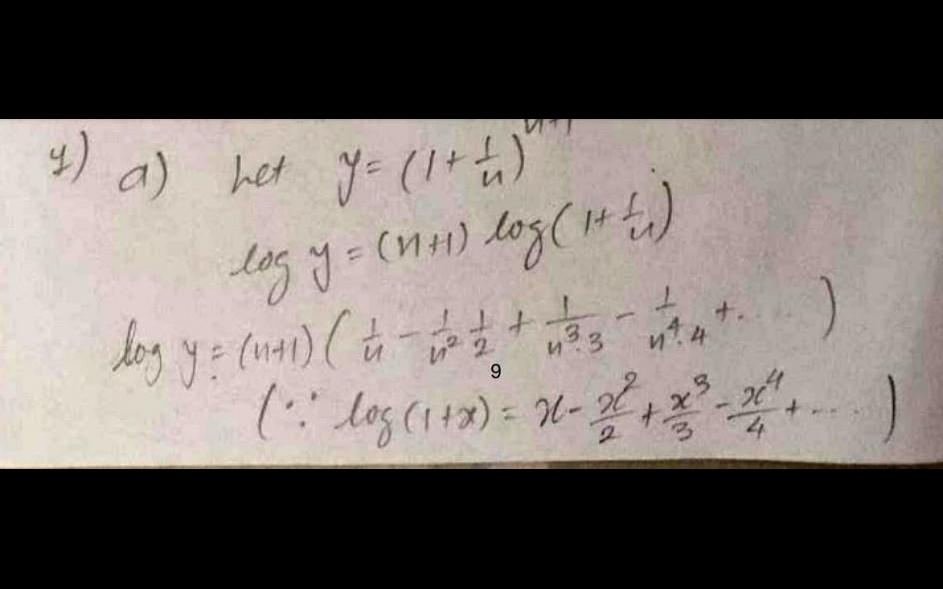 1) a) Let y = (1 + 1/n)^n+1
log y = (n+1) log(1 + 1/n)
log y = (n+1) ( 1/n - 1/n² 1/2 + 1/n³.3 - 1/n⁴.4 + ..... )
9
(∵ log(1+x) = x - x²/2 + x³/3 - x⁴/4 + .... )